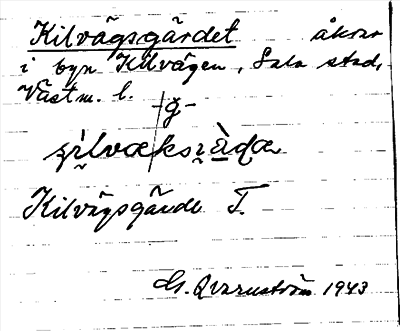 Kilvägsgärdet åkrar
i byn Kilvägen, Sala stad,
Västm. l.
-g-
Kilvägsgärde T.
G. Qvarnström 1943